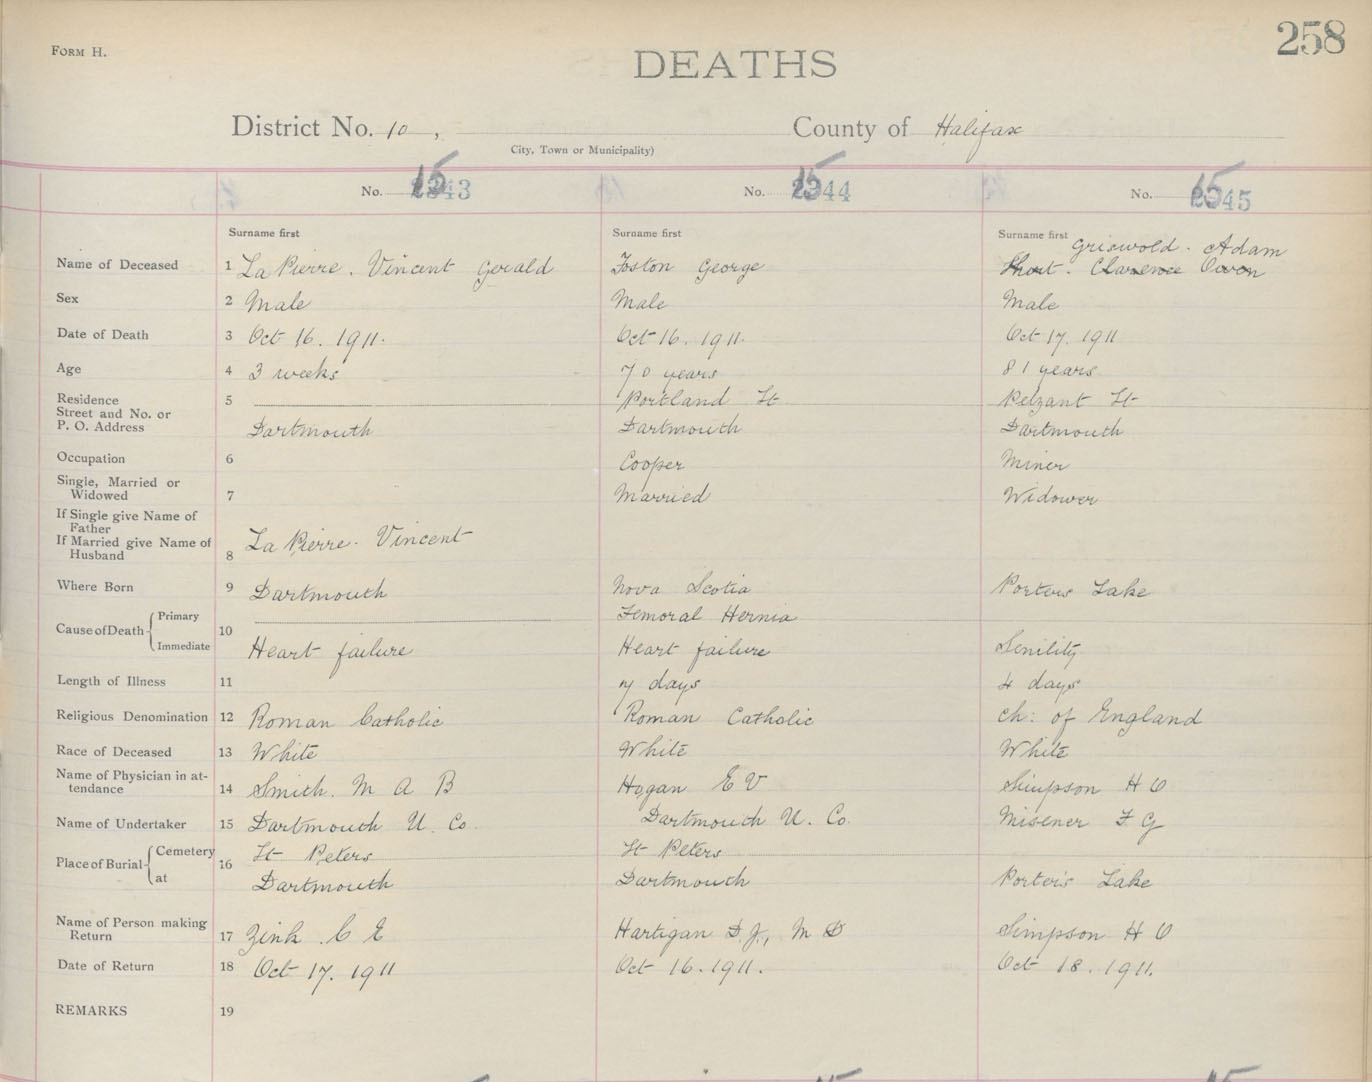 258
FORM H.
DEATHS
District No. 10, County of Halifax
City, Town or Municipality)
No. 15 2343 No. 15 2344 No. 15 2345
Surname first Surname first Surname first Griswold. Adam
Name of Deceased 1 La Pierre. Vincent Gerald Foston George Short. Clarence Owen
Sex 2 Male Male Male
Date of Death 3 Oct 16. 1911. Oct 16. 1911. Oct 17. 1911
Age 4 3 weeks 70 years 81 years
Residence 5 Portland St St
Street and No. or
P. O. Address Dartmouth Dartmouth Dartmouth
Occupation 6 Cooper Miner
Single, Married or
Widowed 7 Married Widower
If Single give Name of
Father
If Married give Name of
Husband 8 La Pierre. Vincent
Where Born 9 Dartmouth Nova Scotia Porters Lake
Cause of Death Primary 10 Femoral Hernia
Immediate Heart failure Heart failure Senility
Length of Illness 11 7 days 4 days
Religious Denomination 12 Roman Catholic Roman Catholic Ch: of England
Race of Deceased 13 White White White
Name of Physician in at-
tendance 14 Smith. M A B Hogan E V Simpson H O
Name of Undertaker 15 Dartmouth U. Co. Dartmouth U. Co. Misener F G
Place of Burial Cemetery 16 St Peters St Peters
at Dartmouth Dartmouth Porter's Lake
Name of Person making
Return 17 Zink. C E Hartigan D. J., M D Simpson H O
Date of Return 18 Oct 17. 1911 Oct 16. 1911. Oct 18. 1911.
REMARKS 19